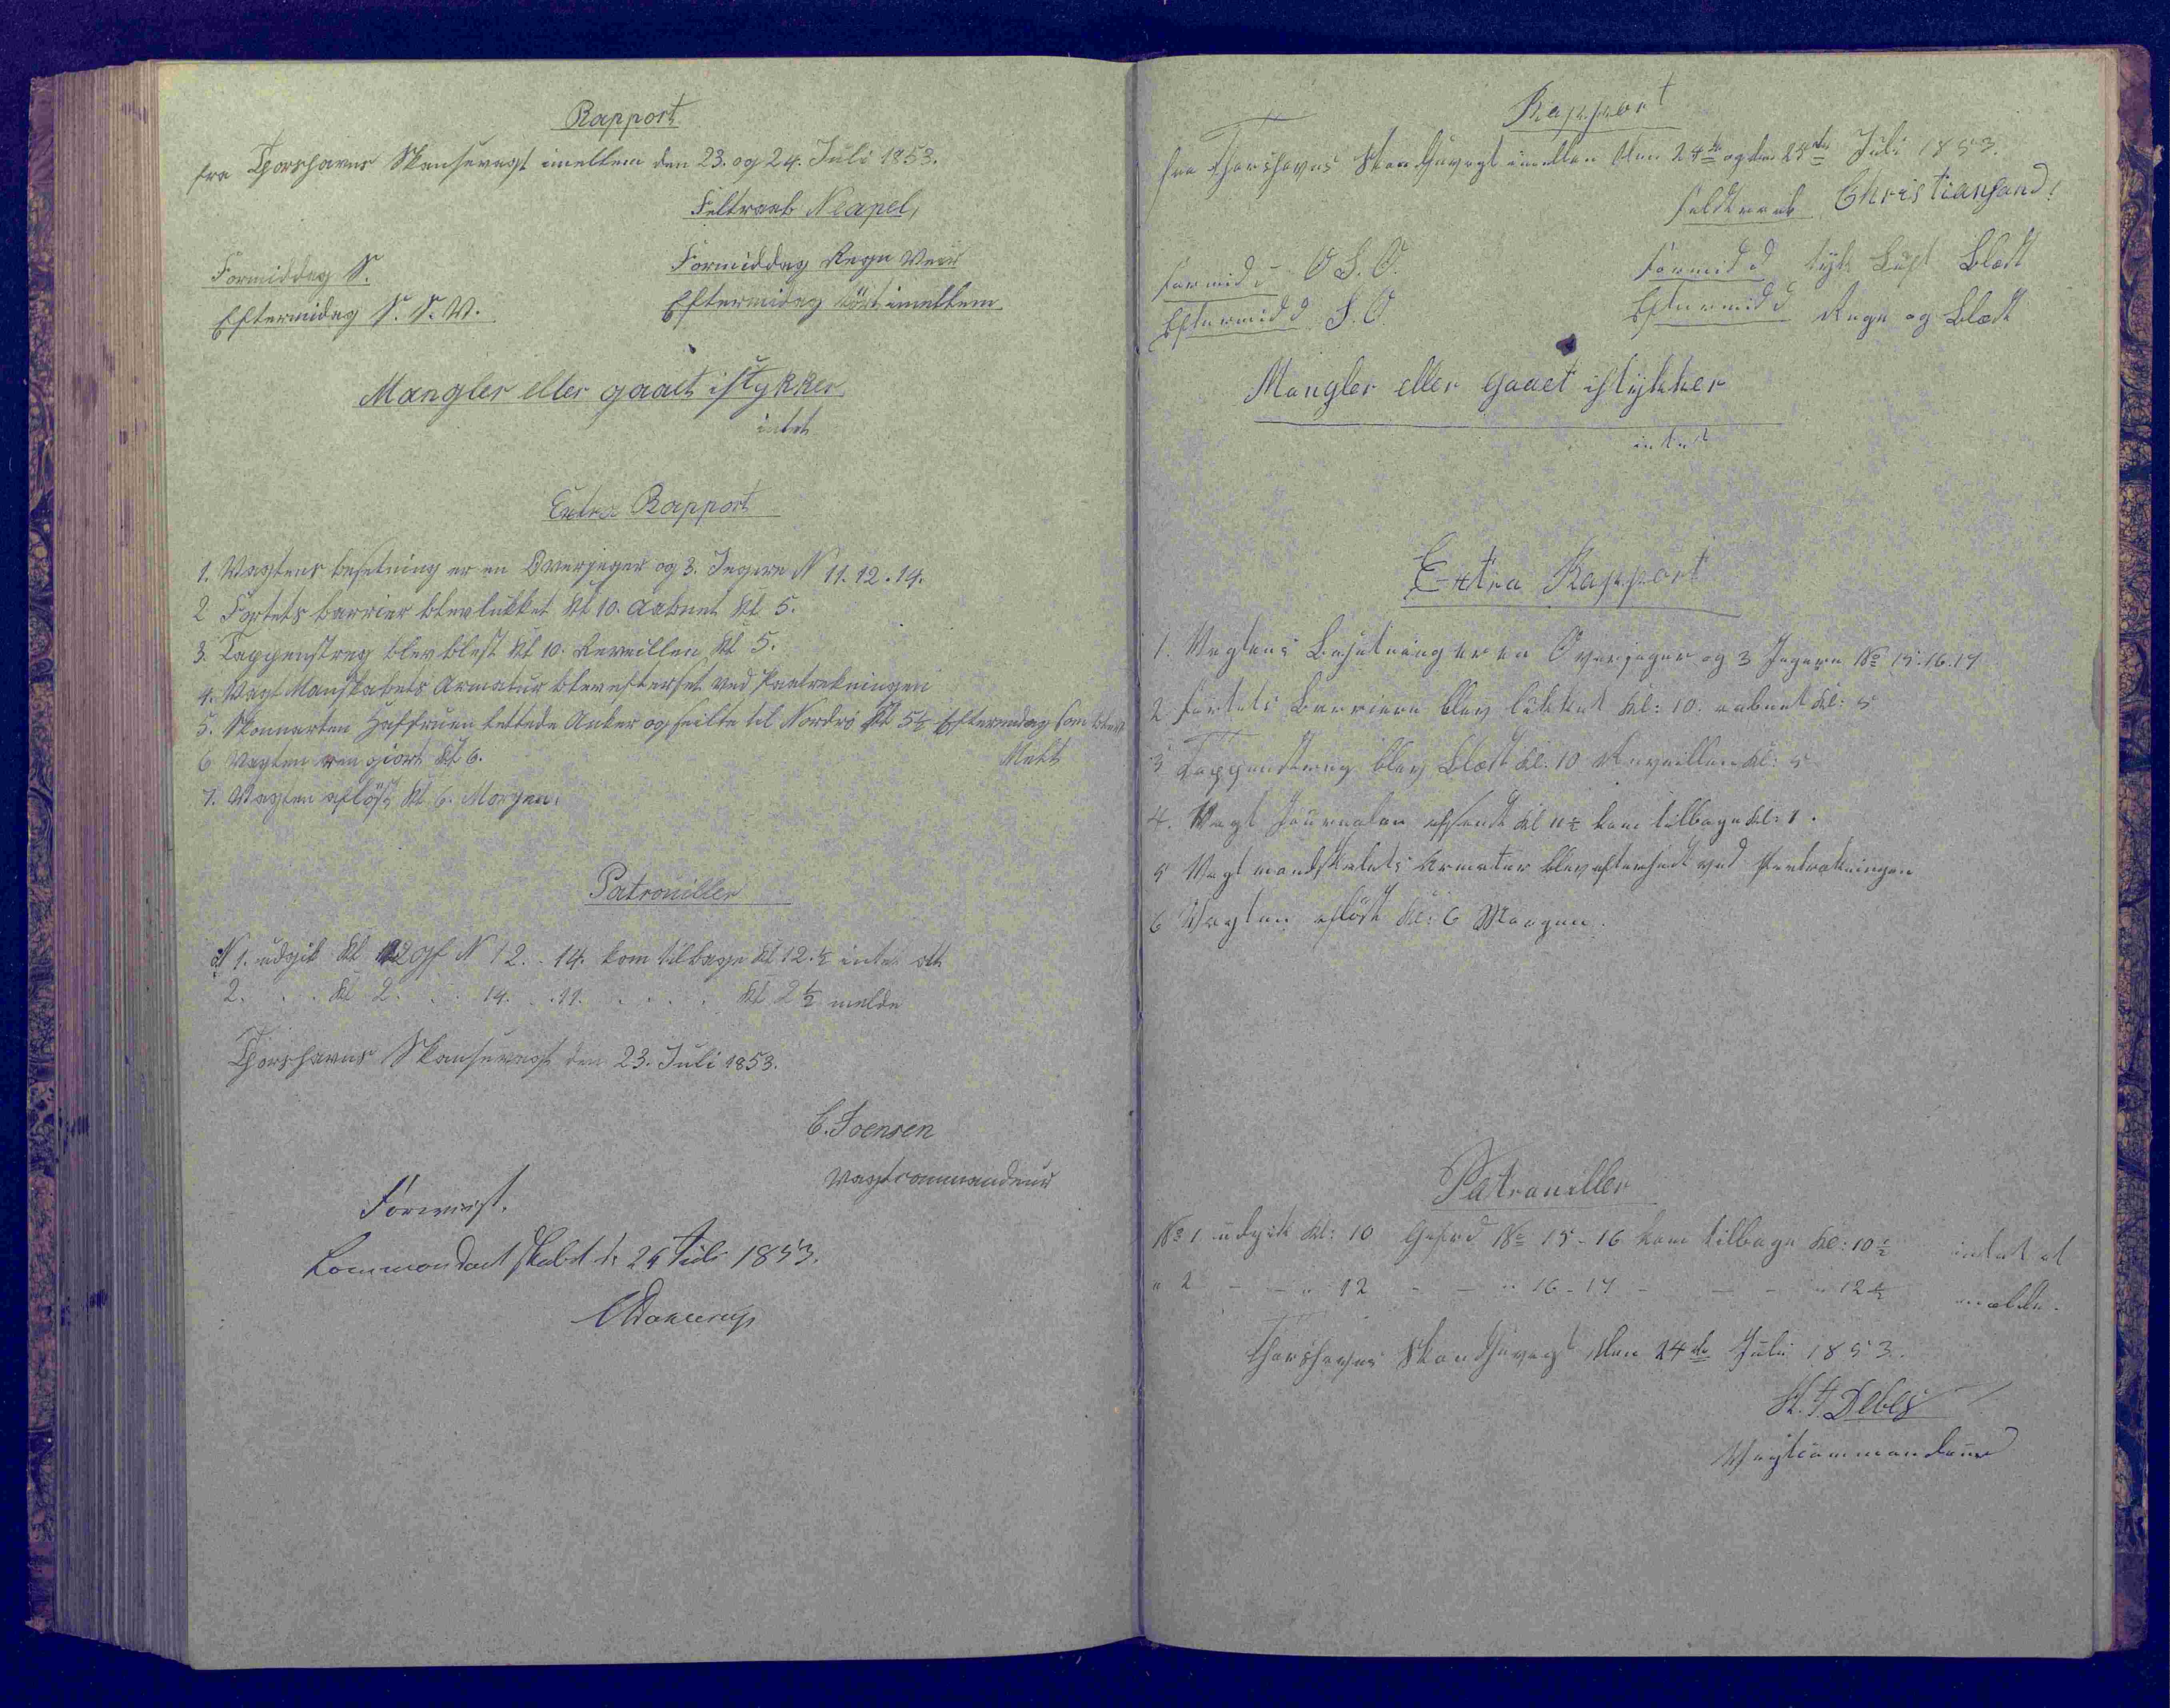 Rapport
fra Thorshavns Skansevagt imellem den 23. og 24. Juli 1853.
Feltraab Neapel,
Formiddag S.
Formiddag Regn Veir
Eftermidag S. S. V.
Eftermidag tört imellem
Mangler eller gaaet istykker
intet
Extra Rapport
1. Vagtens besetning er en Overjeger og 3. Jegere N 11. 12. 14.
2 Fortets barrier blev lukket Kl 10. aabnet Kl 5.
3. Tappenstreg blev blest Kl 10. Reveillen Kl 5.
4. Vagt Manskabets Armatur blev efterset ved Paatrekningen
5. Skonnarten Haffruen lettede Anker og seilte til Nordrö Kl 5½ Eftermidag som blev
Meldt
6 Vagten ren giort Kl 6.
7. Vagten aflöst Kl 6. Morgen.
Patrouiller
N 1. udgik Kl 12 gf N 12. - 14. kom tilbage Kl 12.½ intet att
2. . . Kl 2. . . 14. . 11. . . . . Kl 2½ melde
Thorshavns Skansevagt den 23. Juli 1853.
C. Joensen
Vagtcommandeur
Forevist.
Commandantskabet d. 24 Juli 1853.
CDahlerup
Rapport
fra Thorshavns Skandsevagt imellem den 24de og den 25de Juli 1853.
Feldtraab Christiansand!
Formidd O S. O.
Formidd tyk Luft Blæst
Eftermidd S. O.
Eftermidd Regn og Blæst
Mangler eller gaaet istykker
intet
Extra Rapport
1. Vagtens Besætning er en Overjæger og 3 Jægere No 15. 16. 17
2 Fortets Barriere blev lukket Kl: 10. aabnet Kl: 5
3 Tappenstreg blev blæst Kl. 10 Reveillen Kl: 5
4. Vagt Journalen afsendt Kl 11½ kom tilbage Kl: 1.
5 Vagt mandskabets Armatur blev efterseet ved Paatrækningen
6 Vagten aflöst Kl: 6 Morgen.
Patrouiller
No 1 udgik Kl: 10 Gefred No 15 - 16 kom tilbage Kl: 10½ intet at
" 2 - - " 12 - - " 16 - 17 - - - " 12½ melde.
Thorshavns Skandsevagt den 24de Juli 1853.
H. J. Debes
Vagtcommandeur